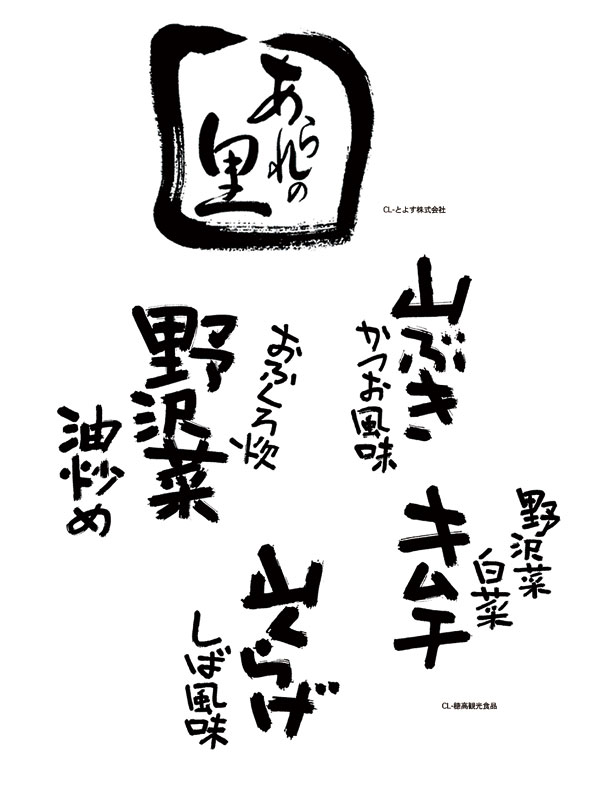 あられの
里
CL-とよす株式会社
山ぶき
かつお風味
おふくろ炊
野沢菜
油炒め
野沢菜
白菜
キムチ
山くらげ
しば風味
CL-穂高観光食品